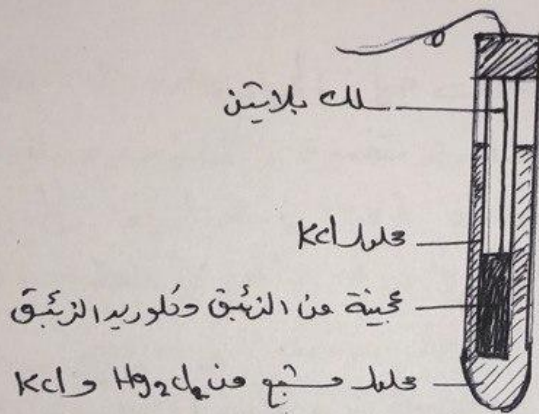 سلك بلاتين
محلول KCl
عجينة من الزئبق وكلوريد الزئبق
محلول مشبع من Hg₂Cl₂ و KCl